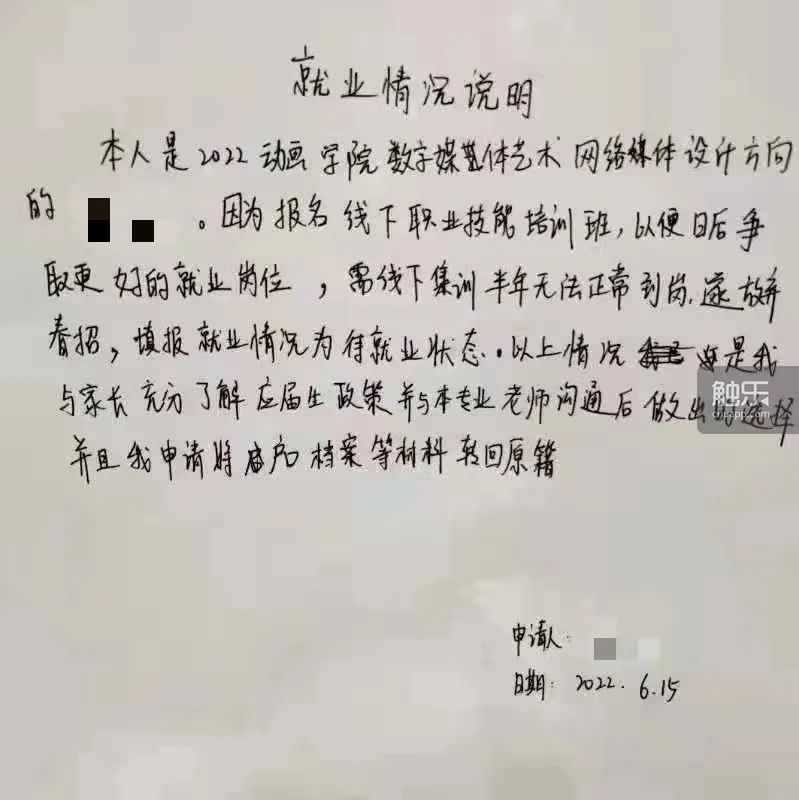 就业情况说明
本人是2022动画学院数字媒体艺术网络媒体设计方向
的 。因为报名线下职业技能培训班,以便日后争
取更好的就业岗位,需线下集训半年无法正常到岗,遂放弃
春招,填报就业情况为待就业状态。以上情况 是我
与家长充分了解应届生政策并与本专业老师沟通后做出的选择
并且我申请将 户档案等材料转回原籍
申请人:
日期:2022.6.15
触乐
chuapp.com